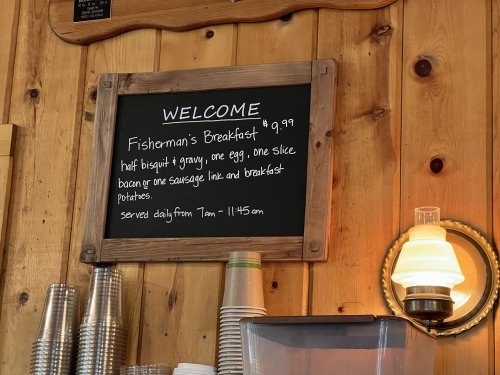 WELCOME
Fisherman's Breakfast $9.99
half bisquit & gravy, one egg, one slice
bacon or one sausage link and breakfast
potatoes.
served daily from 7am - 11:45am